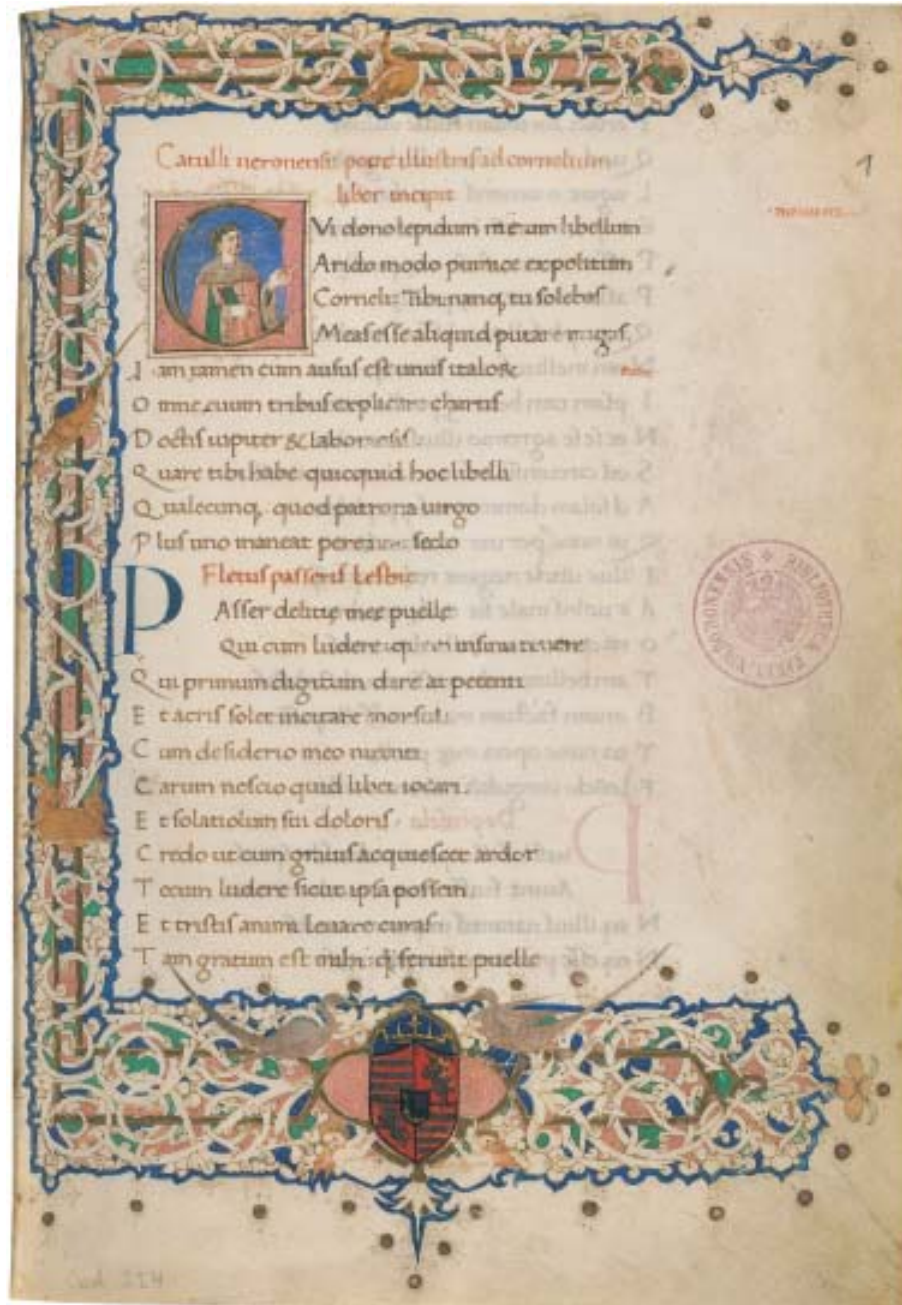 Catulli veronensis poete illustris ad cornelium
liber incipit
CVi dono lepidum meum libellum
Arido modo pumice expolitum
Corneli: Tibi nanq; tu solebas
Meas esse aliquid putare nugas,
Iam tamen cum ausus est unus italoꝝ
Omne euum tribus explicare chartis
Doctis iupiter & laboriosis
Quare tibi habe quicquid hoc libelli
Qualecunq; quod patrona uirgo
Plus uno maneat perenne seclo
Fletus passeris Lesbie
PAsser delitie mee puelle
Qui cum ludere quem in sinu tenere
Qui primum digitum dare at petenti
Et acris solet incitare morsus
Cum desiderio meo nitenti
Carum nescio quid libet iocari
Et solatiolum sui doloris
Credo ut cum grauis acquiescet ardor
Tecum ludere sicut ipsa possem
Et tristis animi leuare curas
Tam gratum est mihi q̃ ferunt puelle
1
Cod. 224